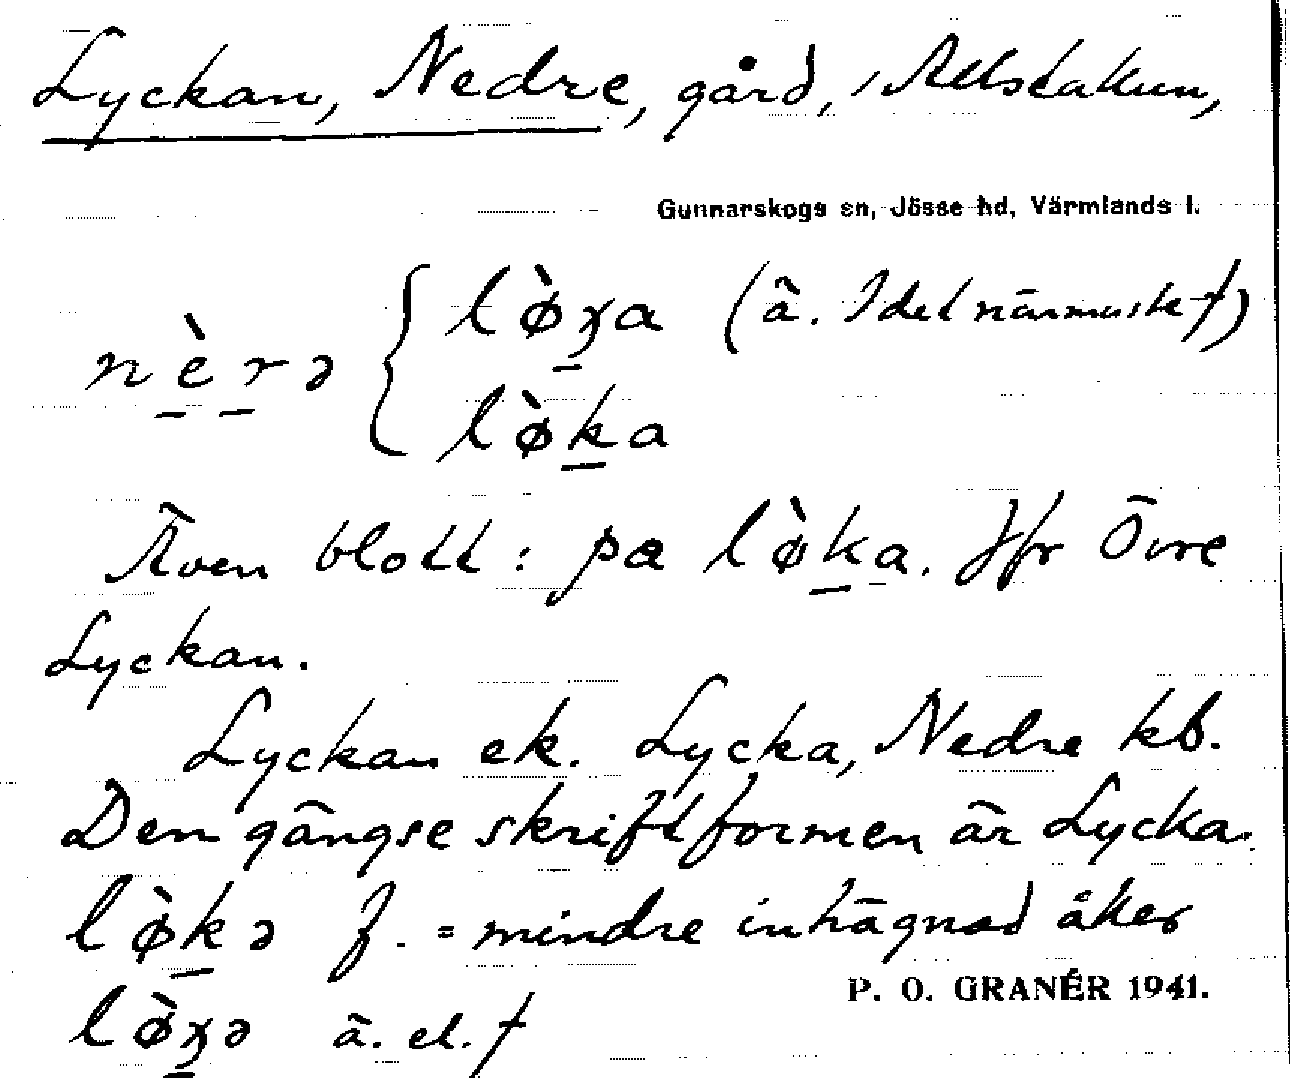 Lyckan, Nedre, gård, i Allstakan,
Gunnarskogs sn, Jösse hd, Värmlands l.
nèrə { lø̀ʒa (ä. I det närmaste †)
lø̀ka
Även blott: pa lø̀ka. Jfr Övre
Lyckan.
Lyckan ek. Lycka, Nedre kb.
Den gängse skriftformen är Lycka.
lø̀kə f. = mindre inhägnad åker
P. O. GRANÉR 1941.
lø̀ʒə ä. el. †